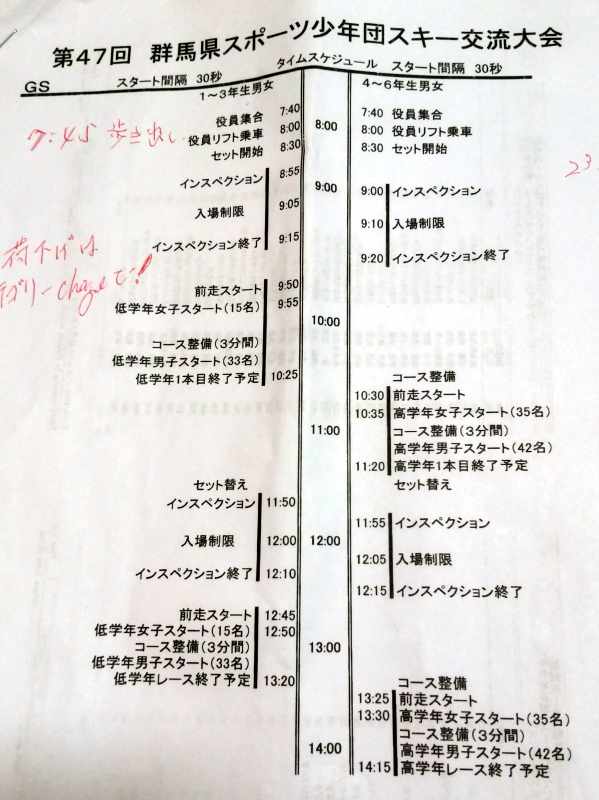 第47回 群馬県スポーツ少年団スキー交流大会
タイムスケジュール
GS スタート間隔 30秒
スタート間隔 30秒
1～3年生男女
4～6年生男女
役員集合 7:40
7:40 役員集合
7:45 歩き出し
役員リフト乗車 8:00
8:00
8:00 役員リフト乗車
セット開始 8:30
8:30 セット開始
23
8:55
インスペクション
9:00
9:00 インスペクション
入場制限 9:05
9:10 入場制限
インスペクション終了 9:15
9:20 インスペクション終了
荷下げは
前走スタート 9:50
低学年女子スタート(15名) 9:55
10:00
コース整備(3分間)
低学年男子スタート(33名)
低学年1本目終了予定 10:25
コース整備
10:30 前走スタート
10:35 高学年女子スタート(35名)
11:00
コース整備(3分間)
高学年男子スタート(42名)
11:20 高学年1本目終了予定
セット替え
セット替え
インスペクション 11:50
11:55 インスペクション
入場制限 12:00
12:00
12:05 入場制限
インスペクション終了 12:10
12:15 インスペクション終了
前走スタート 12:45
低学年女子スタート(15名) 12:50
コース整備(3分間)
13:00
低学年男子スタート(33名)
低学年レース終了予定 13:20
コース整備
13:25 前走スタート
13:30 高学年女子スタート(35名)
コース整備(3分間)
14:00
高学年男子スタート(42名)
14:15 高学年レース終了予定